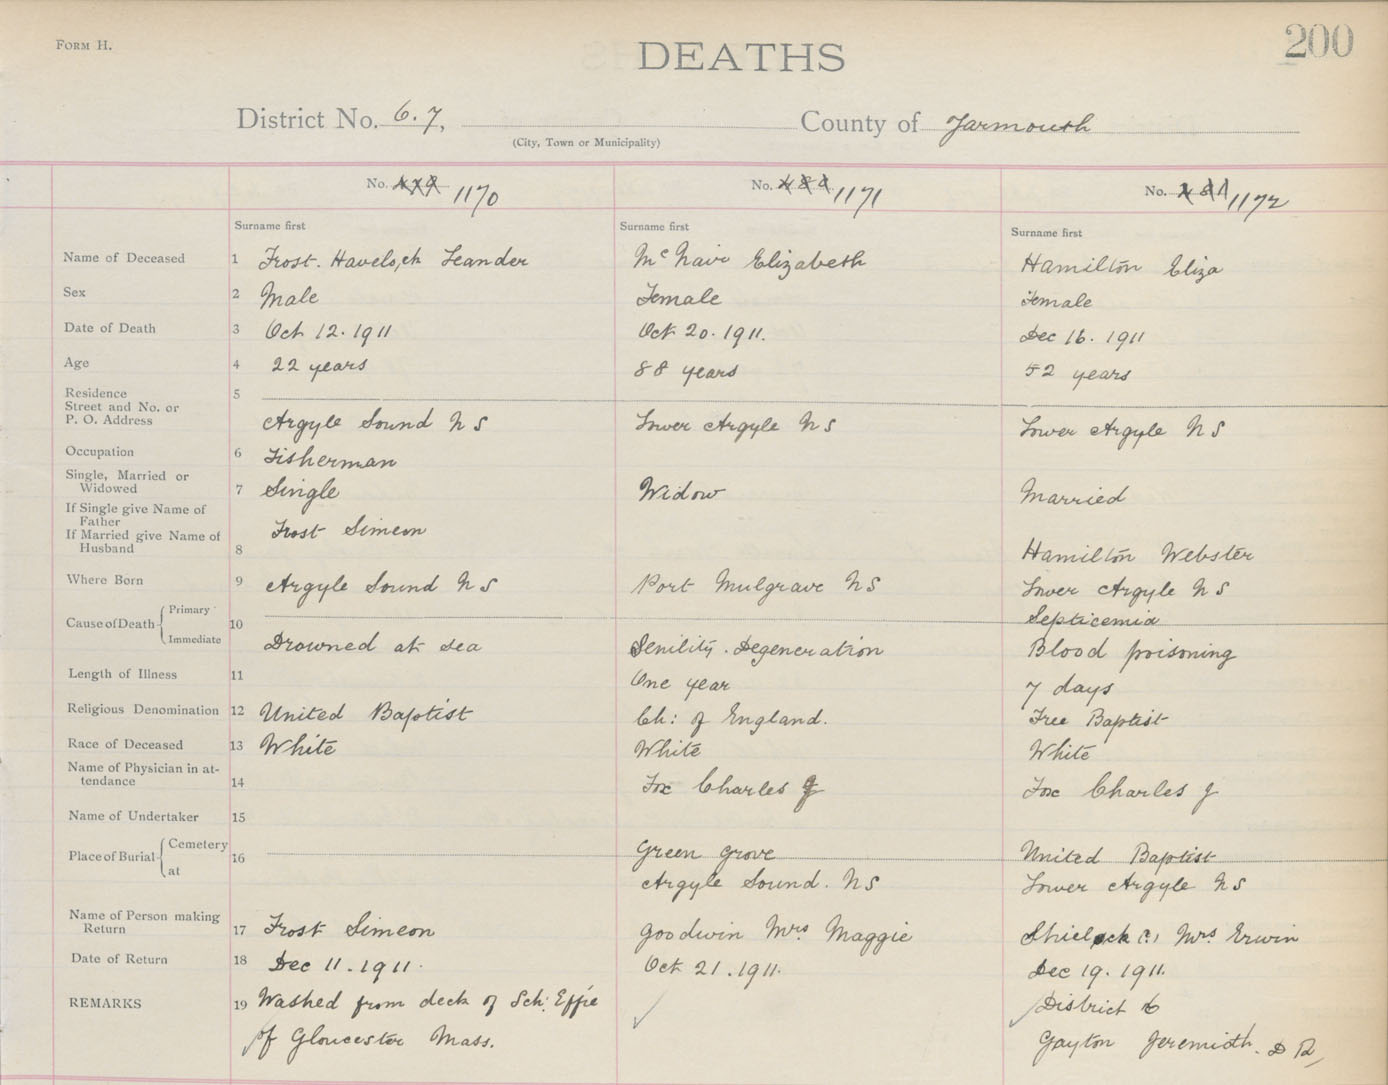 FORM H.
DEATHS
200
District No. 6.7, County of Yarmouth
(City, Town or Municipality)
No. 479 1170 No. 480 1171 No. 481 1172
Surname first Surname first Surname first
Name of Deceased 1 Frost. Havelock Leander McNair Elizabeth Hamilton Eliza
Sex 2 Male Female Female
Date of Death 3 Oct 12. 1911 Oct 20. 1911. Dec 16. 1911
Age 4 22 years 88 years 52 years
Residence 5
Street and No. or
P. O. Address Argyle Sound N S Lower Argyle N S Lower Argyle N S
Occupation 6 Fisherman
Single, Married or
Widowed 7 Single Widow Married
If Single give Name of
Father Frost Simeon
If Married give Name of
Husband 8 Hamilton Webster
Where Born 9 Argyle Sound N S Port Mulgrave N S Lower Argyle N S
Cause of Death Primary 10 Septicemia
Immediate Drowned at sea Senility. Degeneration Blood poisoning
Length of Illness 11 One year 7 days
Religious Denomination 12 United Baptist Ch: of England. Free Baptist
Race of Deceased 13 White White White
Name of Physician in at-
tendance 14 Fox Charles J Fox Charles J
Name of Undertaker 15
Place of Burial Cemetery 16 Green Grove United Baptist
at Argyle Sound. NS Lower Argyle N S
Name of Person making
Return 17 Frost Simeon Goodwin Mrs Maggie Mrs. Erwin
Date of Return 18 Dec 11. 1911. Oct 21. 1911. Dec 19. 1911.
REMARKS 19 Washed from deck of Sch. Effie District 6
of Gloucester Mass. Gayton Jeremiah. D R,